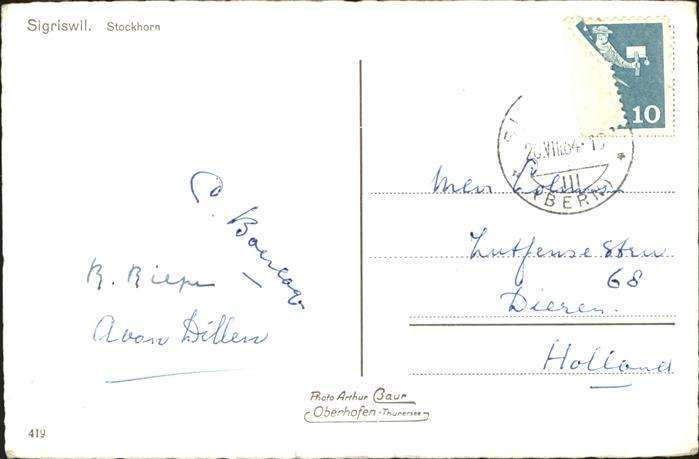 Sigriswil. Stockhorn
10
20.VIII.64-
(BERN)
R. Riepe
A van Dillen
Zutfense Str
68
Dieren.
Holland
Photo Arthur Baur
Oberhofen-Thunersee
419